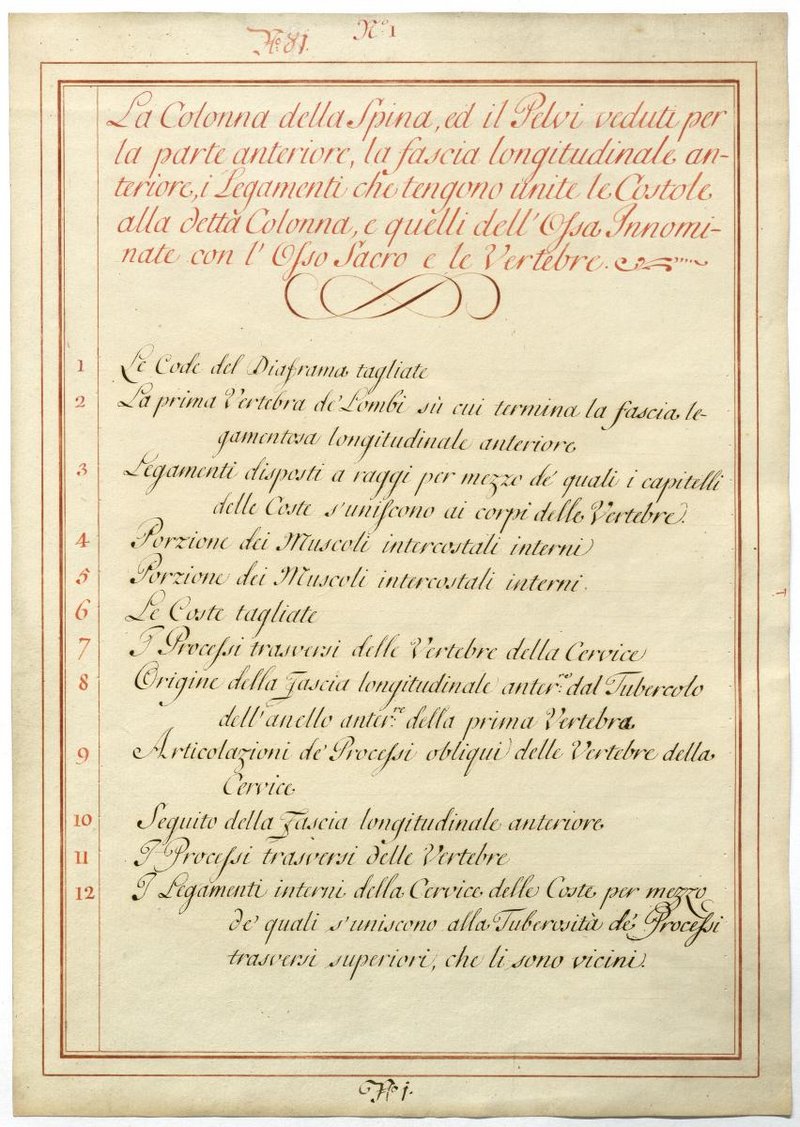 Nº 81.
Nº 1
La Colonna della Spina, ed il Pelvi veduti per
la parte anteriore, la fascia longitudinale an-
teriore, i Legamenti che tengono unite le Costole
alla detta Colonna, e quelli dell' Ossa Innomi-
nate con l' Osso Sacro e le Vertebre.
1 Le Code del Diaframa tagliate
2 La prima Vertebra de' Lombi sù cui termina la fascia le-
gamentosa longitudinale anteriore
3 Legamenti disposti a raggi per mezzo de' quali i capitelli
delle Coste s'uniscono ai corpi delle Vertebre.
4 Porzione dei Muscoli intercostali interni
5 Porzione dei Muscoli intercostali interni.
6 Le Coste tagliate
7 I Processi trasversi delle Vertebre della Cervice
8 Origine della Fascia longitudinale anter:re dal Tubercolo
dell'anello anter:re della prima Vertebra
9 Articolazioni de' Processi obliqui delle Vertebre della
Cervice
10 Seguito della Fascia longitudinale anteriore
11 I Processi trasversi delle Vertebre
12 I Legamenti interni della Cervice delle Coste per mezzo
de' quali s'uniscono alla Tuberosità de' Processi
trasversi superiori, che li sono vicini.
Nº 1.